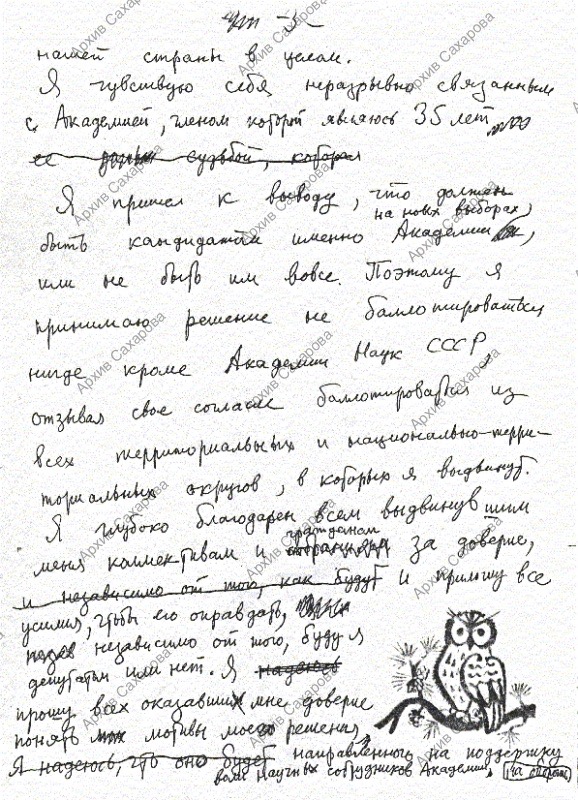 нашей страны в целом.
Я чувствую себя неразрывно связанным
с Академией, членом которой являюсь 35 лет
ее судьбой, которая
Я пришел к выводу, что должен
на новых выборах,
быть кандидатом именно Академии
или не быть им вовсе. Поэтому я
принимаю решение не баллотироваться
нигде кроме Академии Наук СССР,
отзывая свое согласие баллотироваться из
всех территориальных и национально-терри-
ториальных округов, в которых я выдвинут.
Я глубоко благодарен всем выдвинувшим
гражданам
меня коллективам и за доверие,
и независимо от того, как будут и приложу все
усилия, чтобы его оправдать,
независимо от того, буду я
депутатом или нет. Я надеюсь
прошу всех оказавших мне доверие
понять мотивы моего решения,
Я надеюсь, что оно будет направленного на поддержку
воли научных сотрудников Академии,
Архив Сахарова